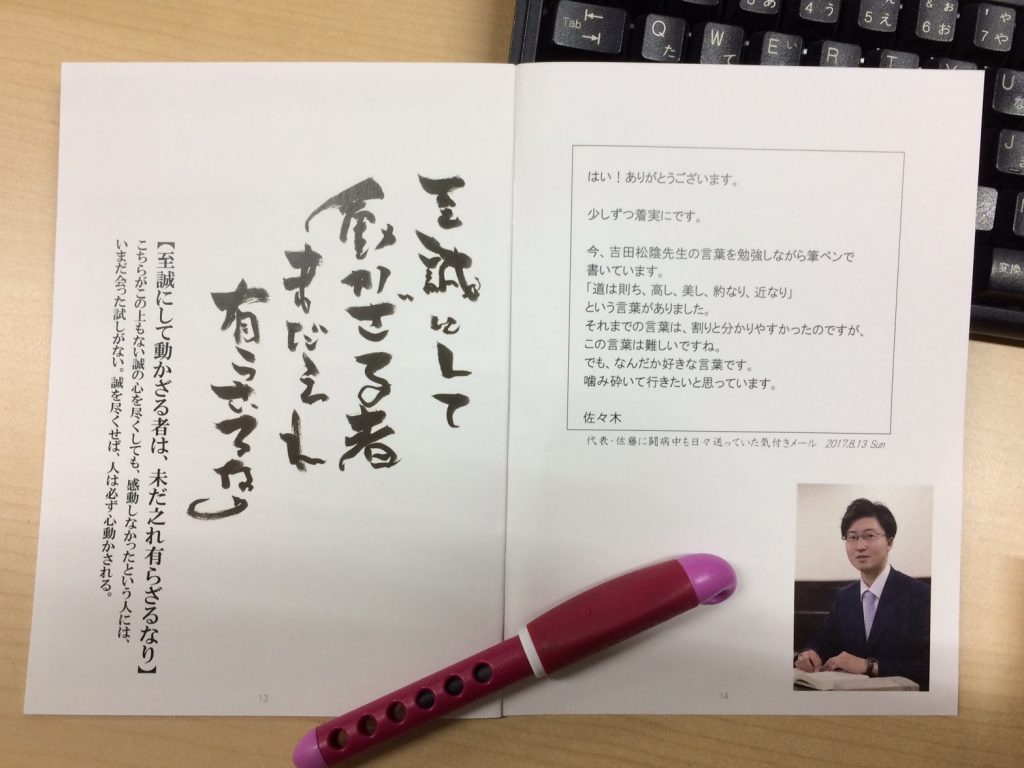 至誠にして
動かざる者
未だこれ
有らざるなり
【至誠にして動かざる者は、未だ之れ有らざるなり】
こちらがこの上もない誠の心を尽くしても、感動しなかったという人には、
いまだ会った試しがない。誠を尽くせば、人は必ず心動かされる。
13
はい！ありがとうございます。
少しずつ着実にです。
今、吉田松陰先生の言葉を勉強しながら筆ペンで
書いています。
「道は則ち、高し、美し、約なり、近なり」
という言葉がありました。
それまでの言葉は、割りと分かりやすかったのですが、
この言葉は難しいですね。
でも、なんだか好きな言葉です。
噛み砕いて行きたいと思っています。
佐々木
代表・佐藤に闘病中も日々送っていた気付きメール 2017.8.13 Sun
14
Tab
Q た
W て
E い
R
T
Y
U な
J
4 う
5 え
6 お
7 や
変換